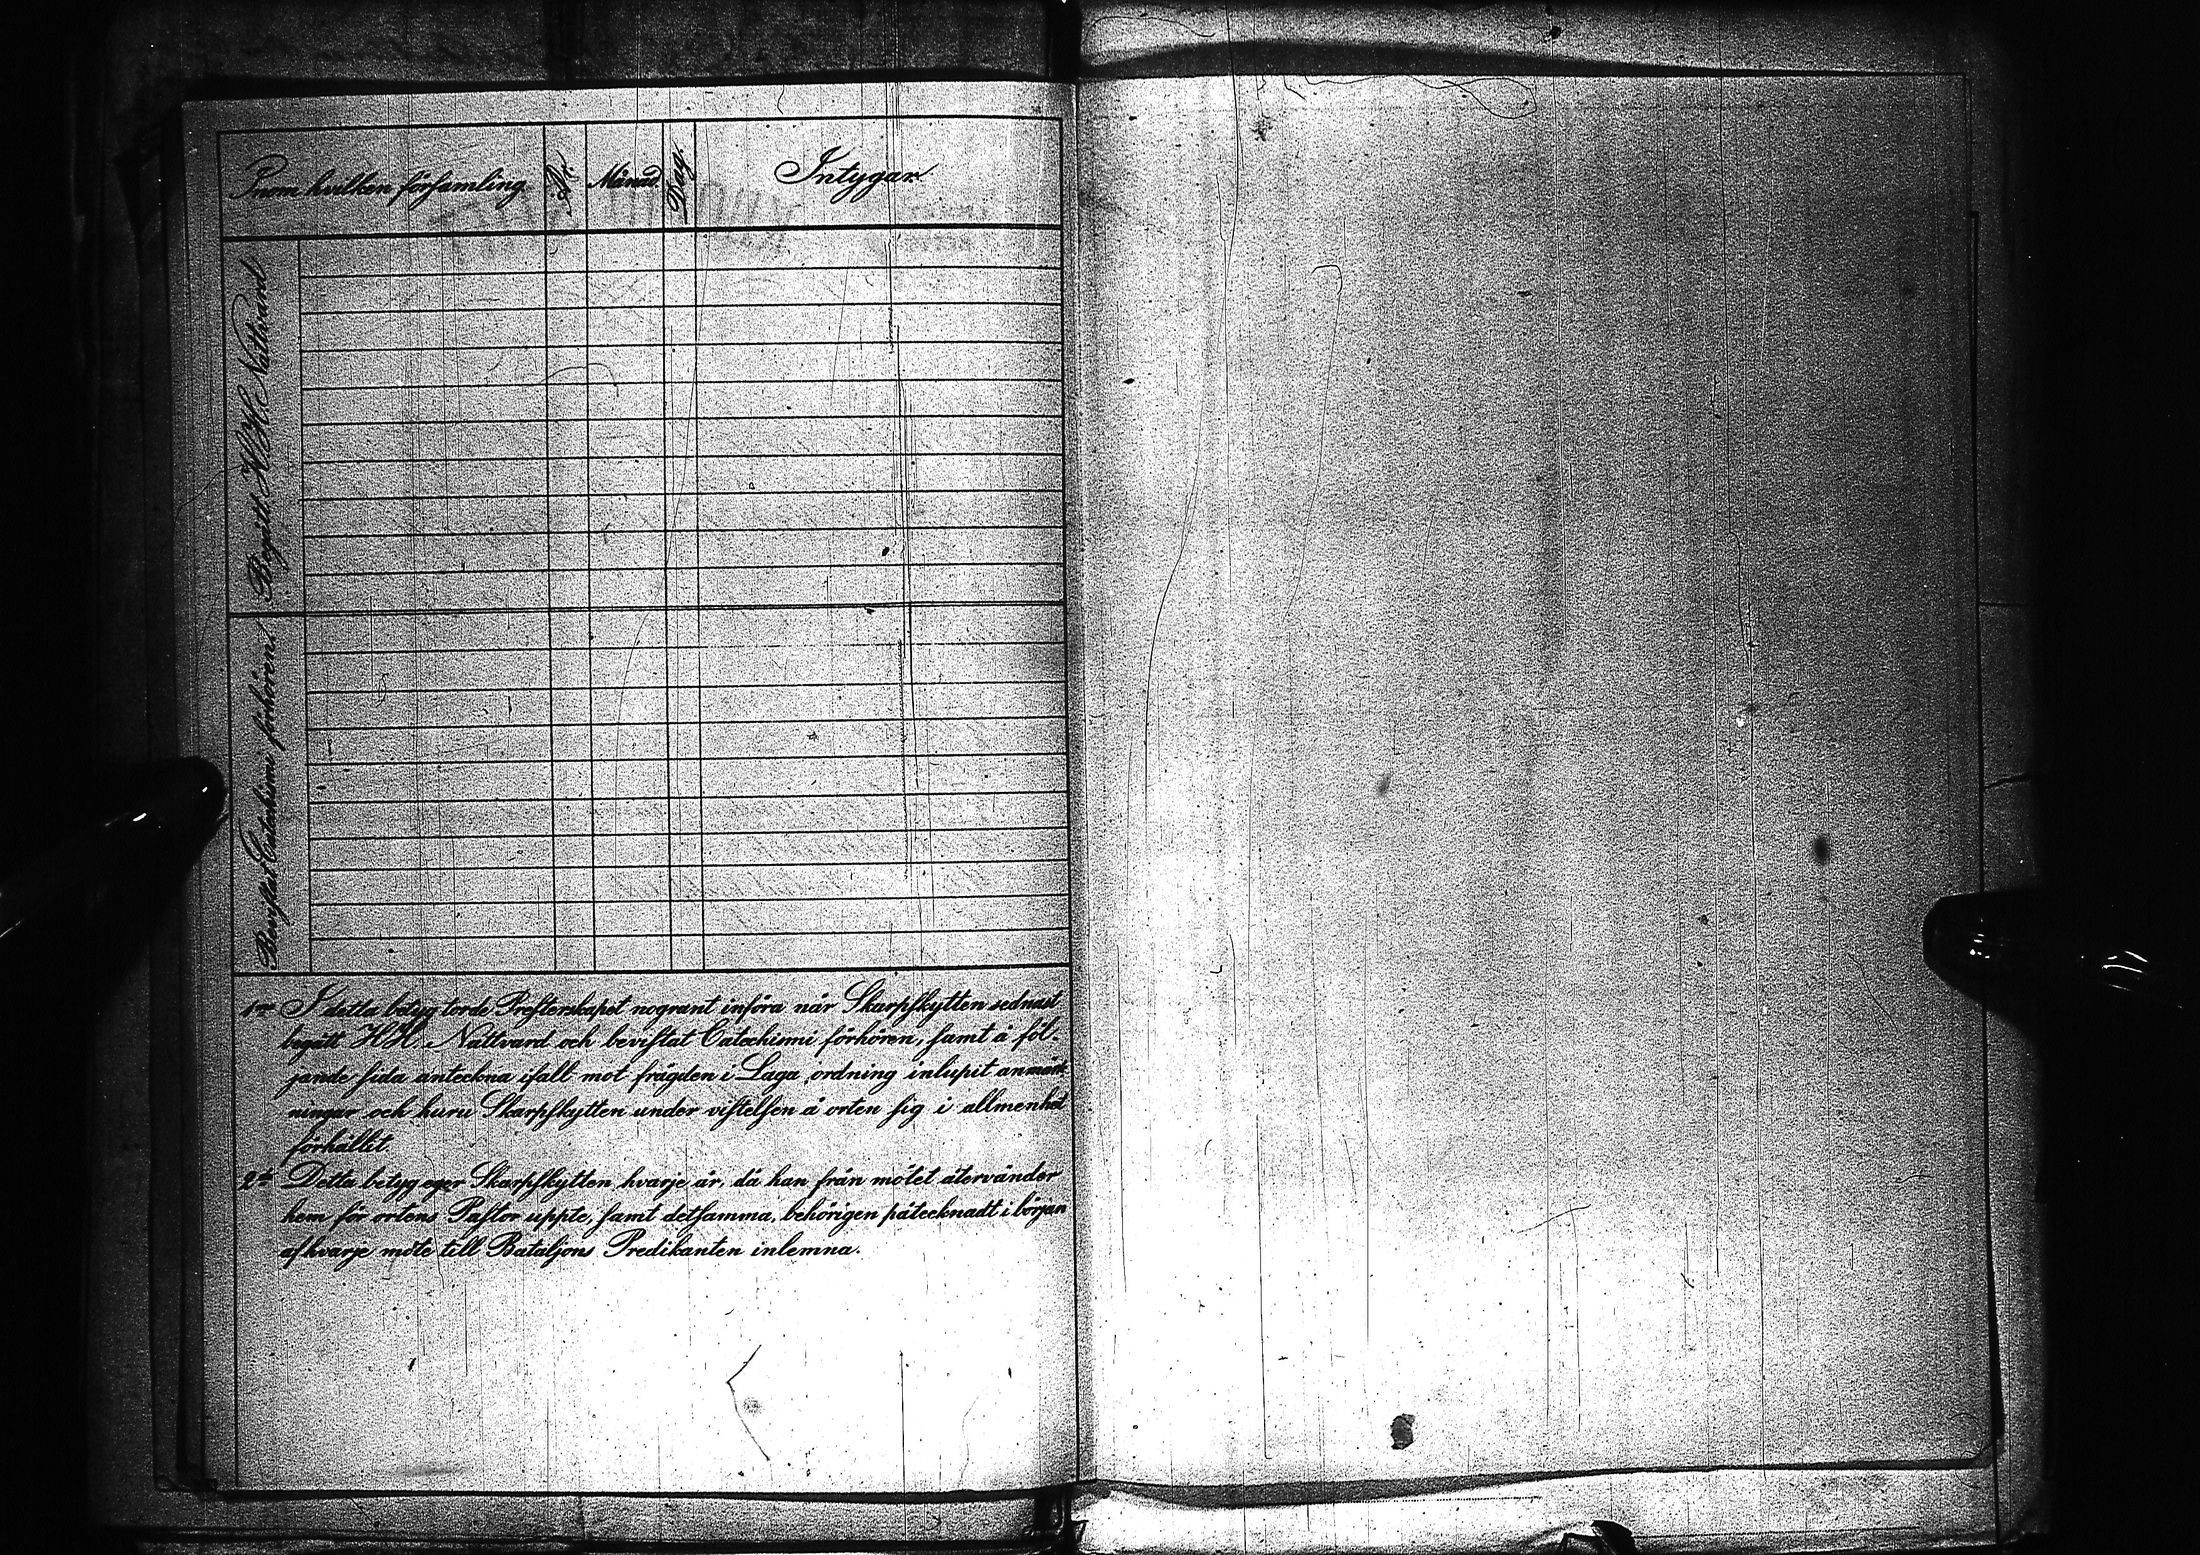 Inom hvilken församling.
År.
Månad.
Dag.
Intygar.
Begått H.H. Nattvard
Bevistat Catechismi förhören.
1mo I detta betyg torde Presterskapet nogrant införa när Skarpskytten sednast
begått H.H. Nattvard och bevistat Catechismi förhören, samt å föl-
jande sida anteckna ifall mot frägden i Laga ordning inlupit anmärk
ningar och huru Skarpskytten under vistelsen å orten sig i allmenhet
förhållit
2do Detta betyg eger Skarpskytten hvarje år, då han från mötet återvänder
hem för ortens Pastor uppte, samt detsamma, behörigen påtecknadt i början
af hvarje möte till Bataljons Predikanten inlemna.